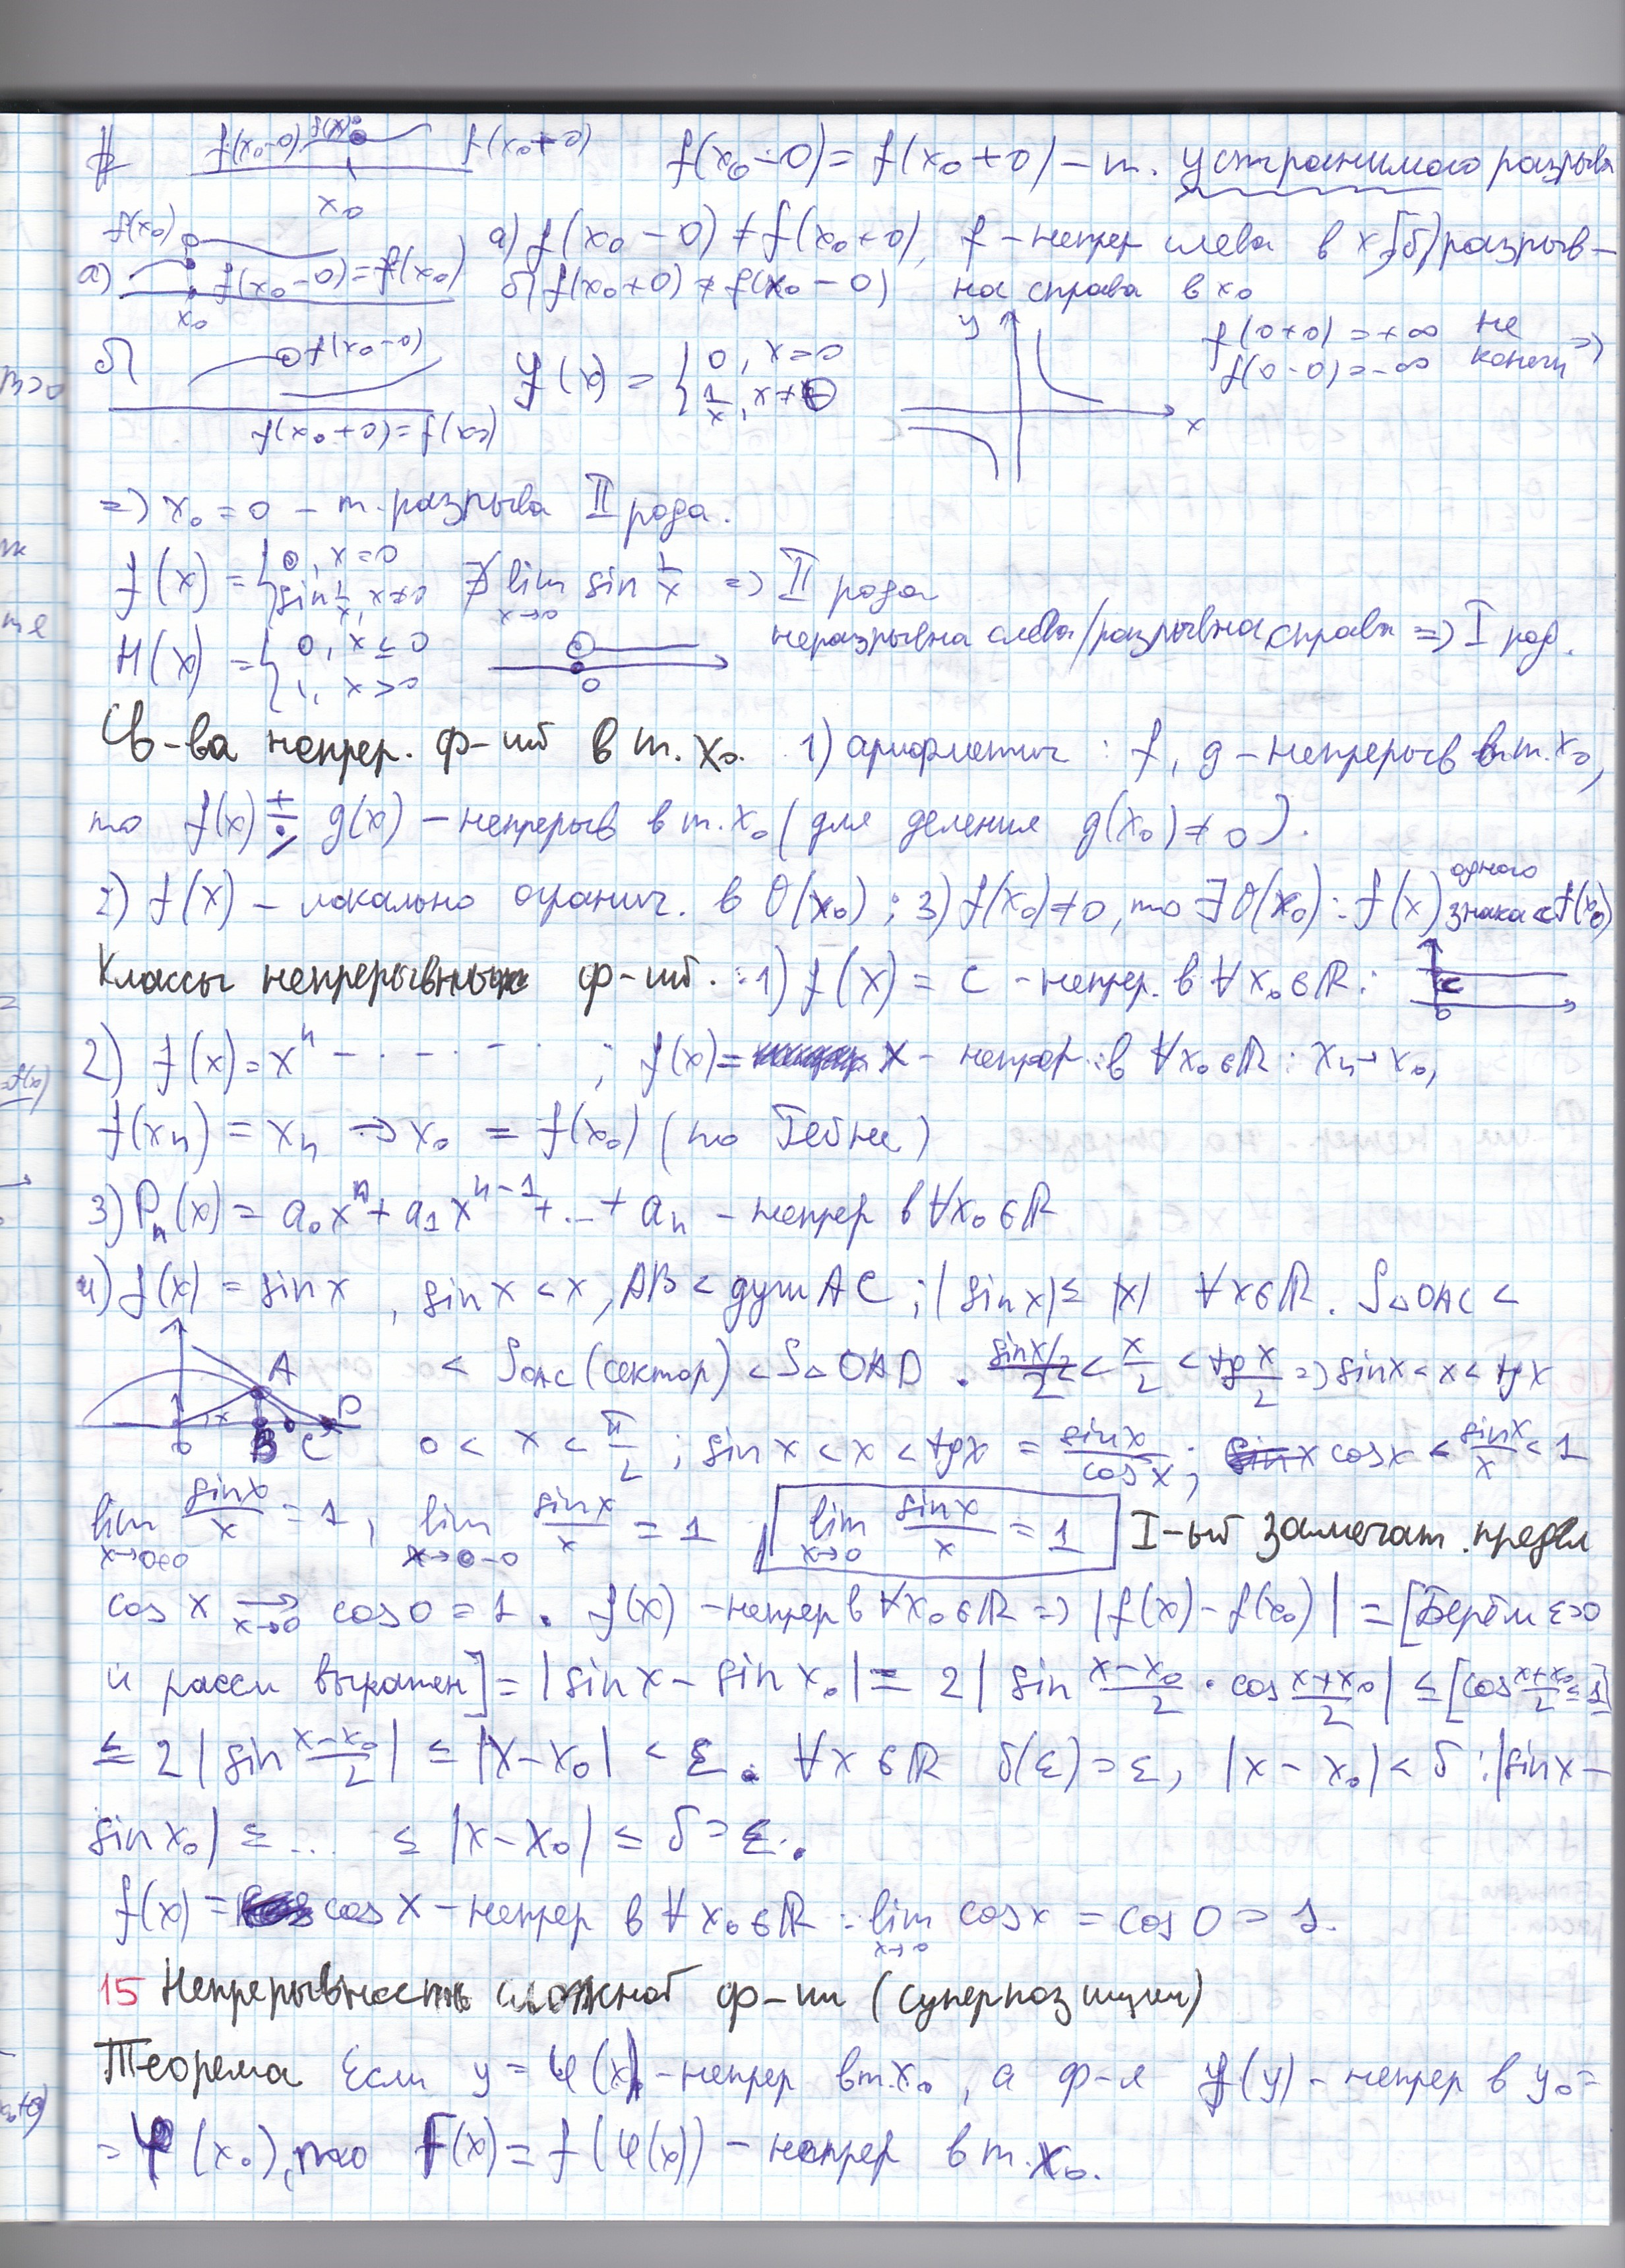 f(x₀-0) f(x₀) f(x₀+0) f(x₀-0) = f(x₀+0) – т. устранимого разрыва
x₀
f(x₀) а) f(x₀-0) ≠ f(x₀+0), f – непрер слева в x₀ б) разрыв-
а) f(x₀-0) = f(x₀) б) f(x₀+0) ≠ f(x₀-0) на справа в x₀
x₀ y f(0+0) = +∞ не
б) f(x₀-0) f(x) = { 0, x=0 f(0-0) = -∞ конечн ⇒
1/x, x≠0 x
f(x₀+0) = f(x₀)
⇒ x₀ = 0 – т. разрыва II рода.
f(x) = { 0, x=0; sin 1/x, x≠0 ∄ lim x→0 sin 1/x ⇒ II рода
H(x) = { 0, x ≤ 0; 1, x > 0 0 неразрывна слева/разрывна справа ⇒ I род.
Св-ва непрер. ф-ий в т. x₀. 1) арифметич : f, g – непрерыв в т. x₀,
то f(x) ± · / g(x) – непрерыв в т. x₀ (для деления g(x₀) ≠ 0).
2) f(x) – локально огранич. в O(x₀); 3) f(x₀) ≠ 0, то ∃ O(x₀) : f(x) одного знака с f(x₀)
Классы непрерывных ф-ий. : 1) f(x) = c – непрер. в ∀x₀∈ℝ : c 0
2) f(x) = xⁿ – · – · – · ; f(x) = x – непрер. в ∀x₀∈ℝ : xₙ → x₀,
f(xₙ) = xₙ → x₀ = f(x₀) (по Гейне)
3) Pₙ(x) = a₀xⁿ + a₁xⁿ⁻¹ + … + aₙ – непрер в ∀x₀∈ℝ
4) f(x) = sin x, sin x < x, AB < дуги AC; |sin x| ≤ |x| ∀x∈ℝ. S△OAC <
A < S OAC (сектор) < S△OAD. sin x/2 < x/2 < tg x/2 ⇒ sin x < x < tg x
0 x B C D 0 < x < π/2; sin x < x < tg x = sin x/cos x; cos x < sin x/x < 1
lim x→0+0 sin x/x = 1, lim x→0-0 sin x/x = 1 lim x→0 sin x/x = 1 I-ый замечат. предел
cos x → x→0 cos 0 = 1. f(x) – непрер в ∀x₀∈ℝ ⇒ |f(x) - f(x₀)| = [Берём ε>0
и рассм выражен] = |sin x - sin x₀| = 2|sin (x-x₀)/2 · cos (x+x₀)/2| ≤ [cos (x+x₀)/2 ≤ 1]
≤ 2|sin (x-x₀)/2| ≤ |x-x₀| < ε. ∀x∈ℝ δ(ε) = ε, |x-x₀| < δ : |sin x -
sin x₀| ≤ … ≤ |x-x₀| ≤ δ = ε.
f(x) = cos x – непрер в ∀x₀∈ℝ : lim x→0 cos x = cos 0 = 1.
15 Непрерывность сложной ф-ии (суперпозиции)
Теорема Если y = φ(x) – непрер в т. x₀, а ф-я f(y) – непрер в y₀ =
= φ(x₀), то F(x) = f(φ(x)) – непрер в т. x₀.